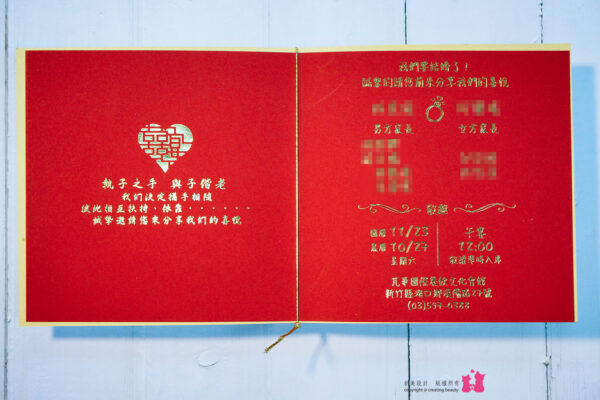 囍
執子之手 與子偕老
我們決定攜手相隨
彼此相互扶持、依靠......
誠摯邀請您來分享我們的喜悅
我們要結婚了！
誠摯的請您前來分享我們的喜悅
男方家長
女方家長
敬邀
國曆 11/23
農曆 10/27
星期六
午宴
12:00
敬請準時入席
新竹縣湖口鄉
27號
(03)597-0388
創美設計 版權所有
copyright @ creating beauty